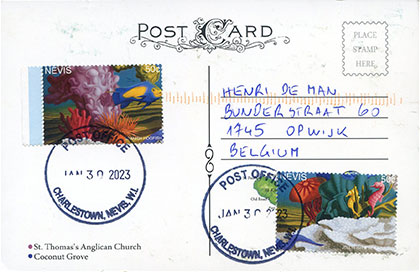 POST CARD
PLACE
STAMP
HERE
NEVIS
HENRI DE MAN
BUNDERSTRAAT 60
1745 OPWIJK
BELGIUM
POST OFFICE
JAN 30 2023
CHARLESTOWN, NEVIS, W.I.
NEVIS
POST OFFICE
JAN 30 2023
CHARLESTOWN, NEVIS, W.I.
Old Road
St. Thomas's Anglican Church
Coconut Grove